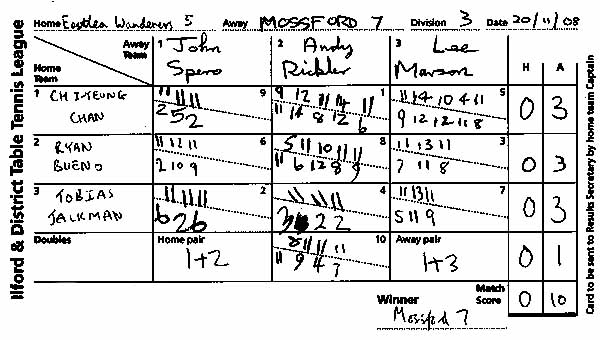 Home Eastlea Wanderers 5 Away MOSSFORD 7 Division 3 Date 20/11/08
Ilford & District Table Tennis League
Away Team
Home Team
1 John Spero
2 Andy Rickler
3 Lee Marson
H A
1 CHI-TEUNG CHAN
9
11 11 11
2 5 2
1
9 12 11 14 11
11 14 8 12 6
5
11 14 10 4 11
9 12 12 11 8
0 3
2 RYAN BUENO
6
11 12 11
2 10 9
8
5 11 10 11 11
11 6 12 8 9
3
11 13 11
7 11 8
0 3
3 TOBIAS JACKMAN
2
11 11 11
6 2 6
4
11 11 11
3 2 2
7
11 13 11
5 11 9
0 3
Doubles
Home pair
1+2
10
8 11 11 11
11 9 4 7
Away pair
1+3
0 1
Winner
Mossford 7
Match Score
0 10
Card to be sent to Results Secretary by home team Captain